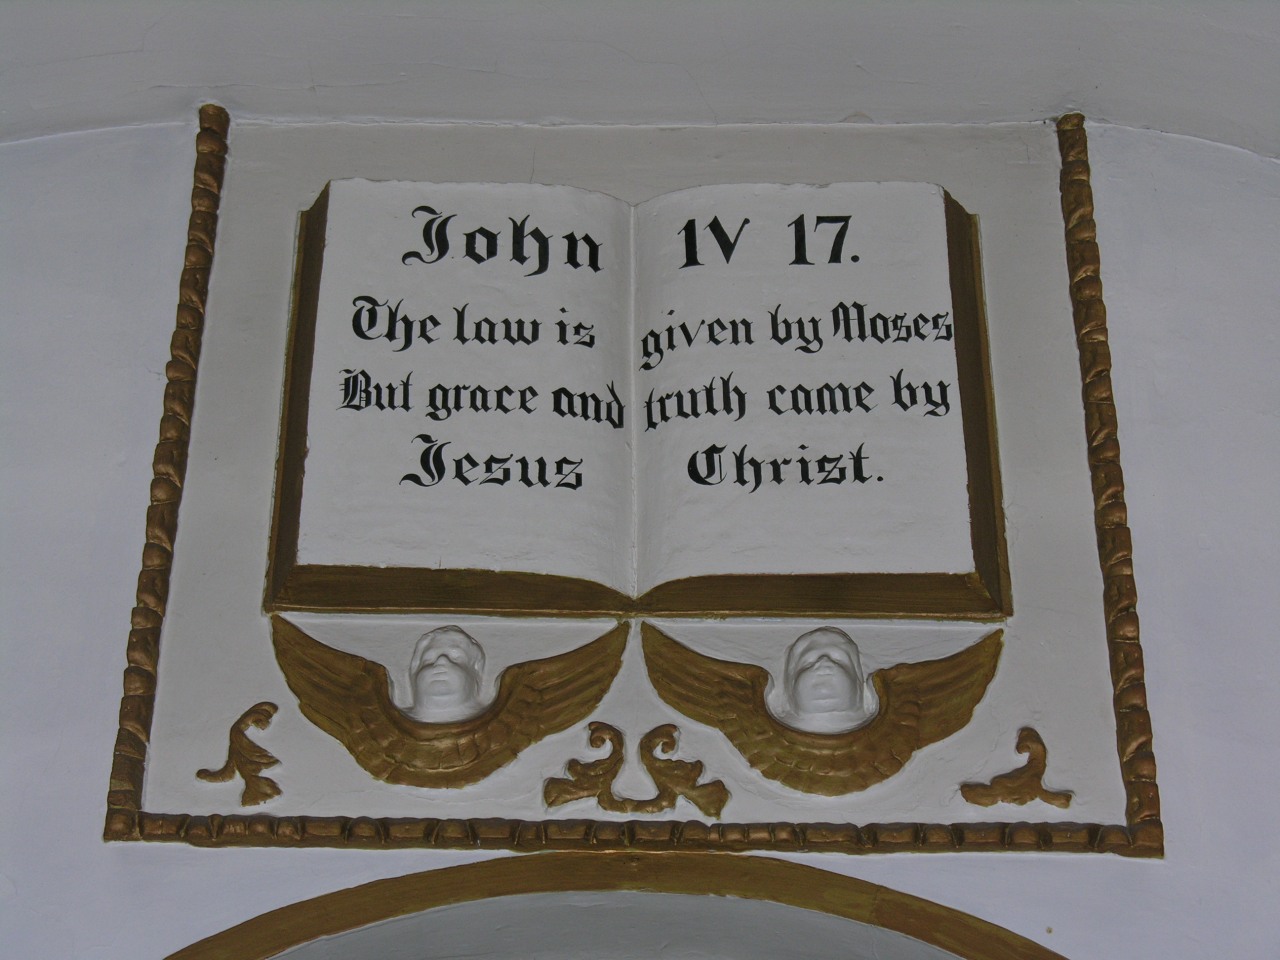 John 1V 17.
The law is given by Moses
But grace and truth came by
Jesus Christ.